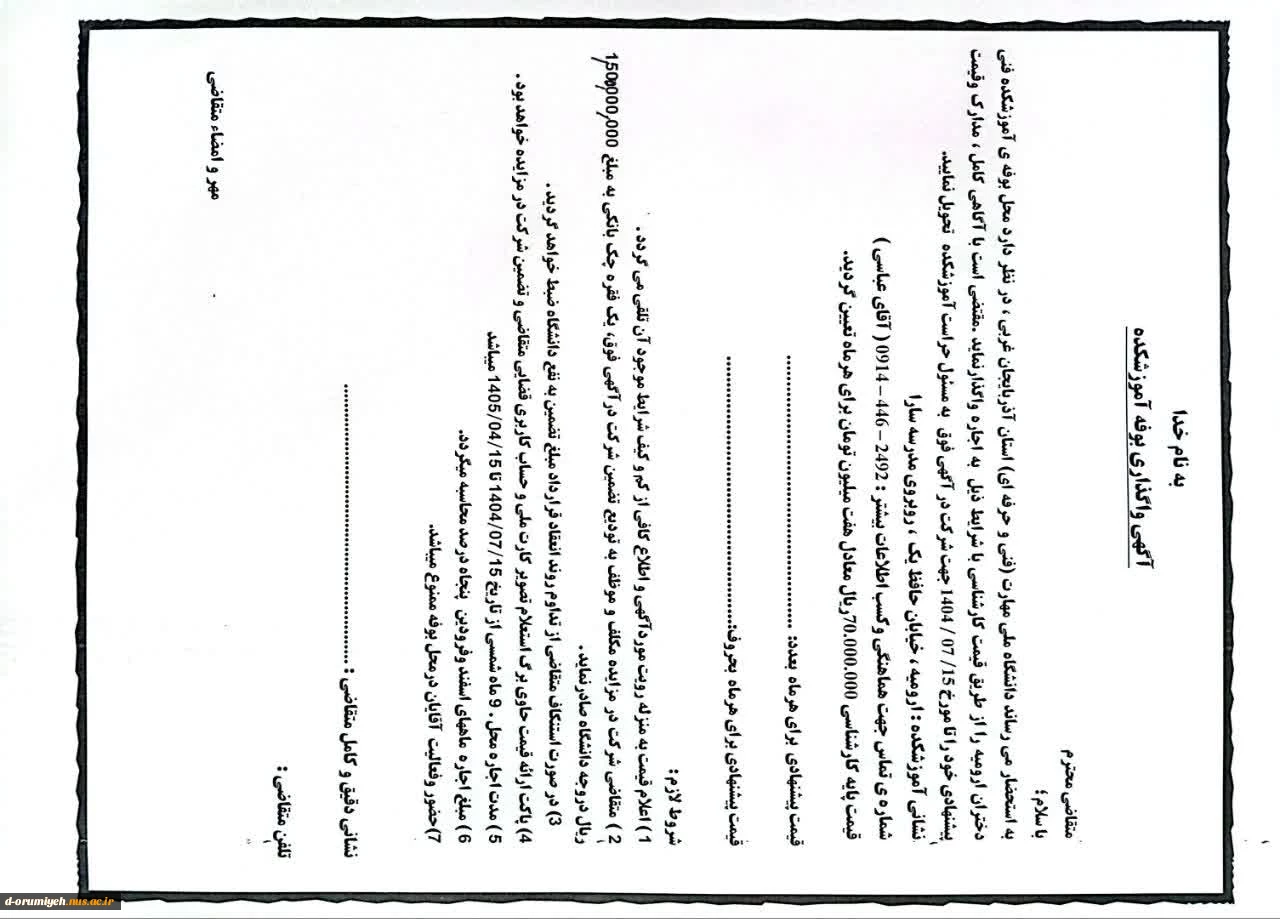 به نام خدا
آگهی واگذاری بوفه آموزشکده
متقاضی محترم
با سلام؛
به استحضار می رساند دانشگاه ملی مهارت (فنی و حرفه ای) استان آذربایجان غربی ، در نظر دارد محل بوفه ی آموزشکده فنی
دختران ارومیه را از طریق قیمت کارشناسی با شرایط ذیل به اجاره واگذار نماید .مقتضی است با آگاهی کامل ، مدارک وقیمت
پیشنهادی خود را تا مورخ 1404/07/15 جهت شرکت در آگهی فوق به مسئول حراست آموزشکده تحویل نمایید.
نشانی آموزشکده : ارومیه ، خیابان حافظ یک ، روبروی مدرسه سارا
شماره ی تماس جهت هماهنگی و کسب اطلاعات بیشتر : 2492 – 446 – 0914 ( آقای عباسی )
قیمت پایه کارشناسی 70.000.000ریال معادل هفت میلیون تومان برای هرماه تعیین گردید.
قیمت پیشنهادی برای هرماه بعدد: ............................................
قیمت پیشنهادی برای هرماه بحروف:............................................
شروط لازم :
1) اعلام قیمت به منزله رویت موردآگهی و اطلاع کافی از کم و کیف شرایط موجود آن تلقی می گردد .
2 ) متقاضی شرکت در مزایده مکلف و موظف به تودیع تضمین شرکت درآگهی فوق، یک فقره چک بانکی به مبلغ
ریال دروجه دانشگاه صادرنماید .
3) در صورت استنکاف متقاضی از تداوم روند انعقاد قرارداد مبلغ تضمین به نفع دانشگاه ضبط خواهد گردید .
4) پاکت ارائه قیمت حاوی برگ استعلام تصویر کارت ملی و حساب کاربری قضایی متقاضی و تضمین شرکت در مزایده خواهد بود .
5 ) مدت اجاره محل . 9 ماه شمسی از تاریخ 1404/07/15 تا 1405/04/15 میباشد
6 ) مبلغ اجاره ماههای اسفند وفروردین پنجاه درصد محاسبه میگردد.
7)حضور وفعالیت آقایان درمحل بوفه ممنوع میباشد.
نشانی دقیق و کامل متقاضی : ............................................
تلفن متقاضی :
مهر و امضاء متقاضی
d-orumiyeh.nus.ac.ir